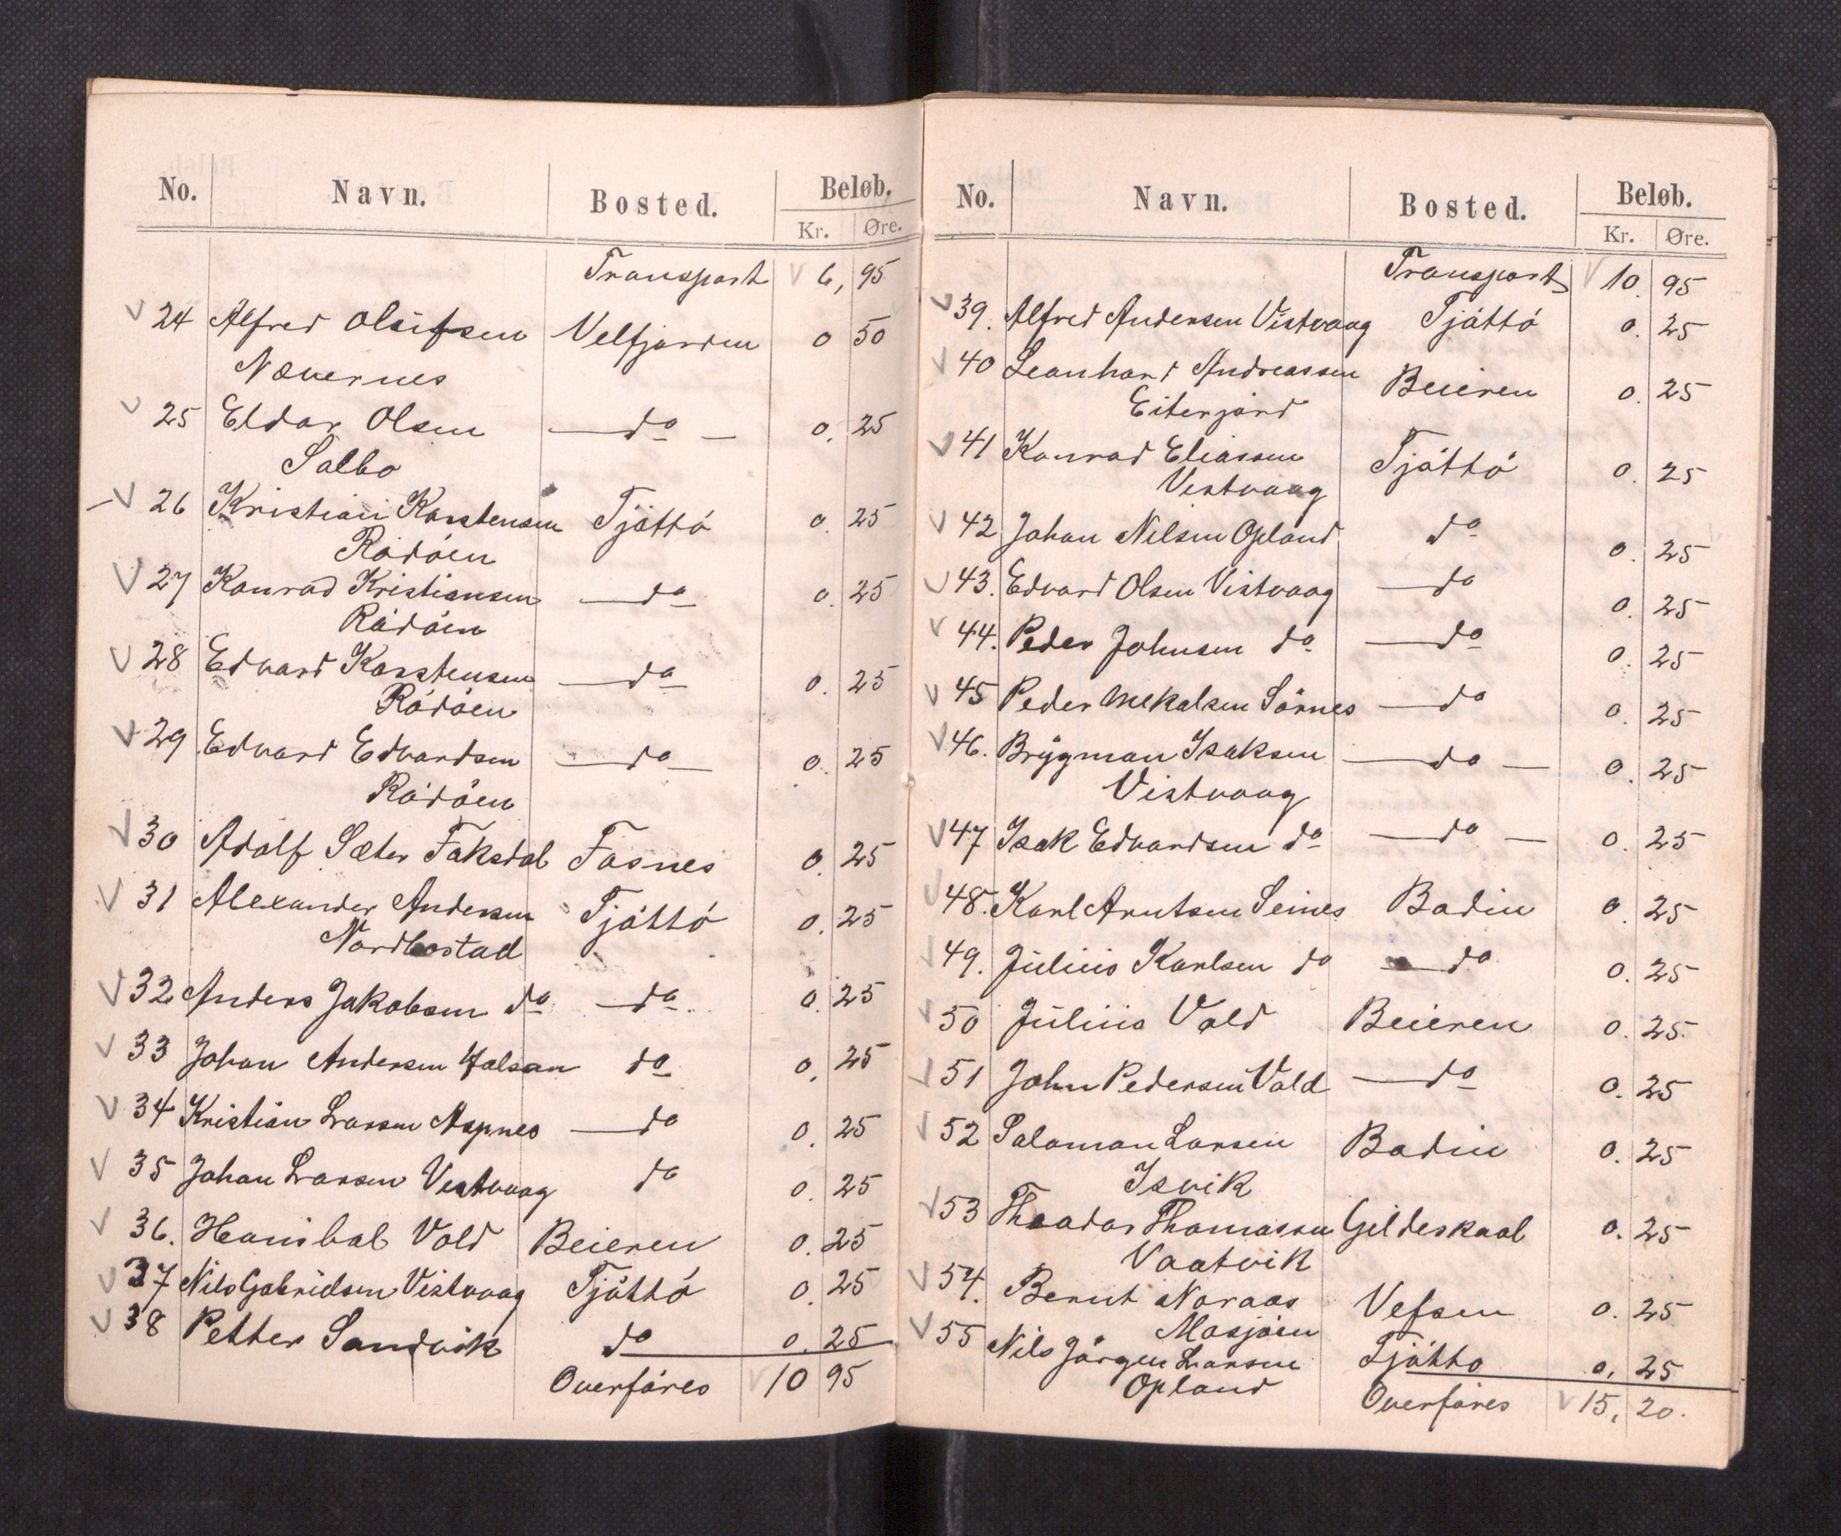 No. Navn. Bosted. Beløb.
Kr. Øre.
Transport 6, 95
24 Alfred Olufsen Velfjorden 0 50
Nævernes
25 Eldar Olsen do 0. 25
Salbo
26 Kristian Karstensen Tjøttö 0. 25
Rödöen
27 Konrad Kristiansen do 0. 25
Rödöen
28 Edvard Karstensen do 0. 25
Rödöen
29 Edvard Edvardsen do 0. 25
Rödöen
30 Adolf Sæter Faksdal Fosnes 0. 25
31 Alexander Andersen Tjöttö 0. 25
Nordbostad
32 Anders Jakobsen do do 0. 25
33 Johan Andersen Halsan do 0. 25
34 Kristian Larsen Aspnes do 0. 25
35 Johan Larsen Vestvaag do 0. 25
36. Hanibal Vold Beieren 0. 25
37 Nils Gabrielsen Vistvaag Tjöttö 0. 25
38 Petter Sandvik do 0. 25
Overföres 10 95
No. Navn. Bosted. Beløb.
Kr. Øre.
Transport 10. 95
39. Alfred Andersen Vistvaag Tjöttö 0. 25
40 Leonhard Andreassen Beieren 0. 25
Eiterjord
41 Konrad Eliassen Tjöttö 0. 25
Vestvaag
42 Johan Nilsen Opland do 0. 25
43. Edvard Olsen Vistvaag do 0. 25
44. Peder Johnsen do do 0. 25
45 Peder Mekalsen Sörnes do 0. 25
46. Brygman Isaksen do 0. 25
Vistvaag
47 Isak Edvardsen do do 0. 25
48. Karl Arntsen Seines Bodin 0. 25
49. Julius Karlsen do do 0. 25
50 Julius Vold Beieren 0. 25.
51 John Pedersen Vold do 0. 25
52 Salomon Larsen Bodin 0. 25
Isvik
53 Theodor Thomassen Gildeskaal 0. 25
Vaatvik
54. Bernt Noraas Vefsen 0. 25
Mosjöen
55 Nils Jörgen Larsen Tjötto 0, 25
Opland
Overföres 15, 20.